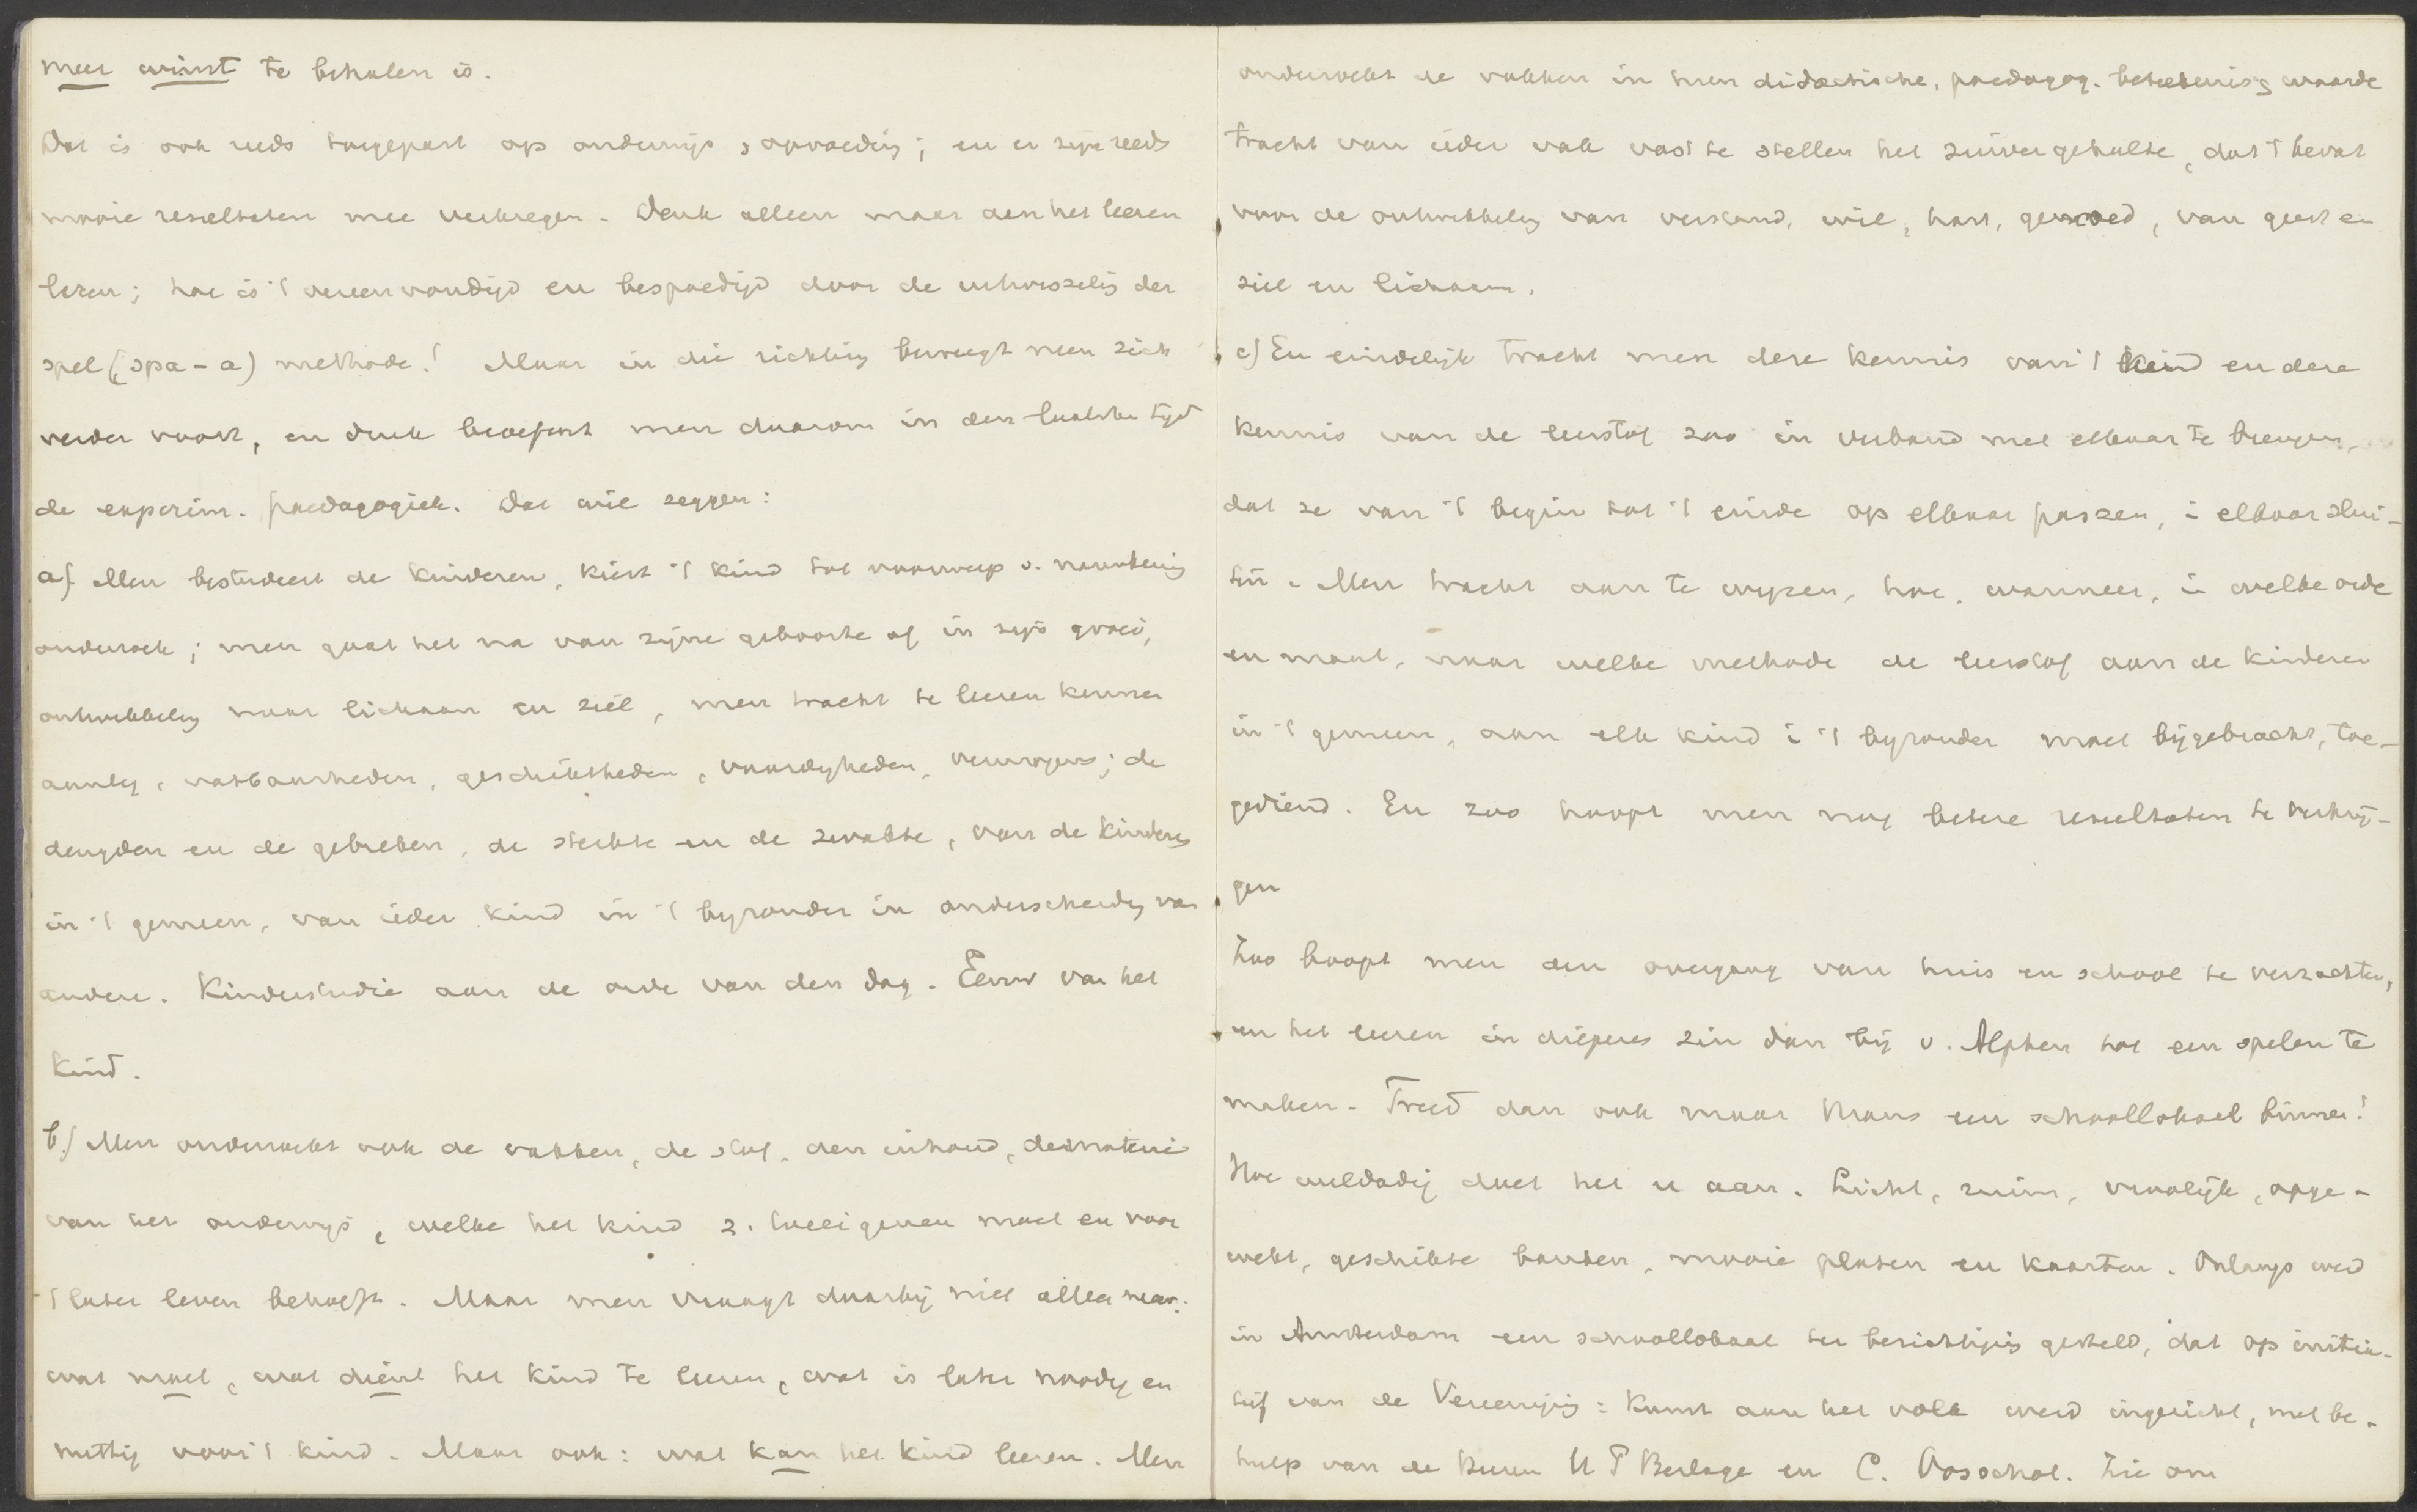 meer winst te behalen is.
Dat is ook reeds toegepast op onderwijs, opvoeding; en er zijn reeds
mooie resultaten mee verkregen. Denk alleen maar aan het leeren
lezen; hoe is 't vereenvoudigd en bespoedigd door de verwisseling der
spel (spa-a) methode! Maar in die richting beweegt men zich
verder voort, en druk beoefent men daarom in den laatsten tijd
de experim. paedagogiek. Dat wil zeggen:
a) Men bestudeert de kinderen, kiest 't kind tot voorwerp v. nauwkeurig
onderzoek; men gaat het na van zijne geboorte af in zijn groei,
ontwikkeling naar lichaam en ziel, men tracht te leeren kennen
aanleg, vatbaarheden, geschiktheden, vaardigheden, vermogens; de
deugden en de gebreken, de sterkte en de zwakte, van de kinderen
in 't gemeen, van ieder kind in 't byzonder in onderscheidg van
andere. Kinderstudie aan de orde van den dag. Eeuw van het
kind.
b) Men onderzoekt ook de vakken, de stof, den inhoud, de materie
van het onderwijs, welke het kind z. toeeigenen moet en voor
't later leven behoeft. Maar men vraagt daarbij niet alleen maar:
wat moet, wat dient het kind te leeren, wat is later noodig en
nuttig voor 't kind. Maar ook: wat kan het kind leeren. Men
onderzoekt de vakken in hun didactische, paedagog. beteekenis, waarde
tracht van ieder vak vast te stellen het zuiver gehalte, dat 't bevat
voor de ontwikkeling van verstand, wil, hart, gemoed, van geest en
ziel en lichaam.
c) En eindelijk tracht men deze kennis van 't kind en deze
kennis van de leerstof zoo in verband met elkaar te brengen,
dat ze van 't begin tot 't einde op elkaar passen, i elkaar slui-
ten. Men tracht aan te wyzen, hoe, wanneer, i welke orde
en maat, naar welke methode de leerstof aan de kinderen
in 't gemeen, aan elk kind i 't byzonder moet bijgebracht, toe-
gediend. En zoo hoopt men nog betere resultaten te verkrij-
gen
Zoo hoopt men den overgang van huis en school te verzachten,
en het leeren in dieperen zin dan bij v. Alphen tot een spelen te
maken. Treed dan ook maar thans een schoollokaal binnen!
Hoe weldadig doet het u aan. Licht, ruim, vroolijk, opge-
wekt, geschikte banken, mooie platen en kaarten. Onlangs werd
in Amsterdam een schoollokaal ter bezichtiging gesteld, dat op initia-
tief van de Vereeniging: Kunst aan het volk werd ingericht, met be-
hulp van de heeren H P Berlage en C. Zie om